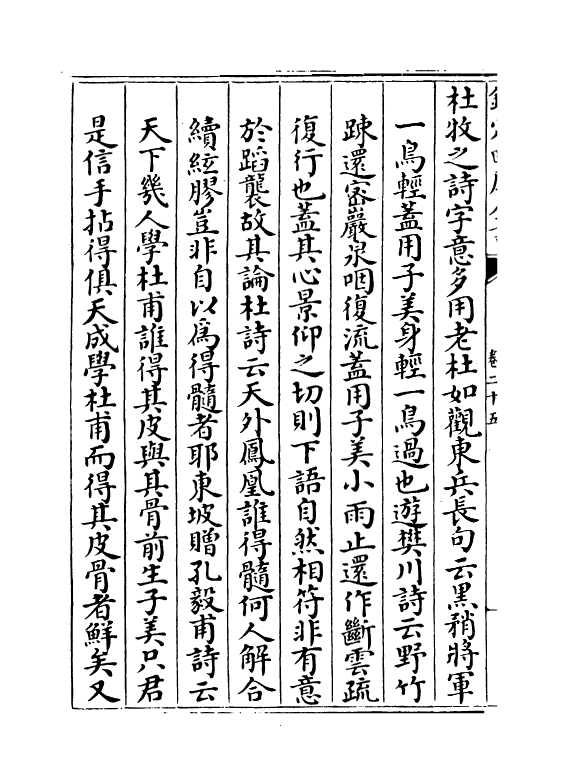 卷二十五
杜牧之詩字意多用老杜如觀東兵長句云黑矟將軍
一鳥輕蓋用子美身輕一鳥過也遊樊川詩云野竹
踈還密巖泉咽復流蓋用子美小雨止還作斷雲疏
復行也蓋其心景仰之切則下語自然相符非有意
於蹈襲故其論杜詩云天外鳳凰誰得髓何人解合
續絃膠豈非自以爲得髓者耶東坡贈孔毅甫詩云
天下幾人學杜甫誰得其皮與其骨前生子美只君
是信手拈得俱天成學杜甫而得其皮骨者鮮矣又